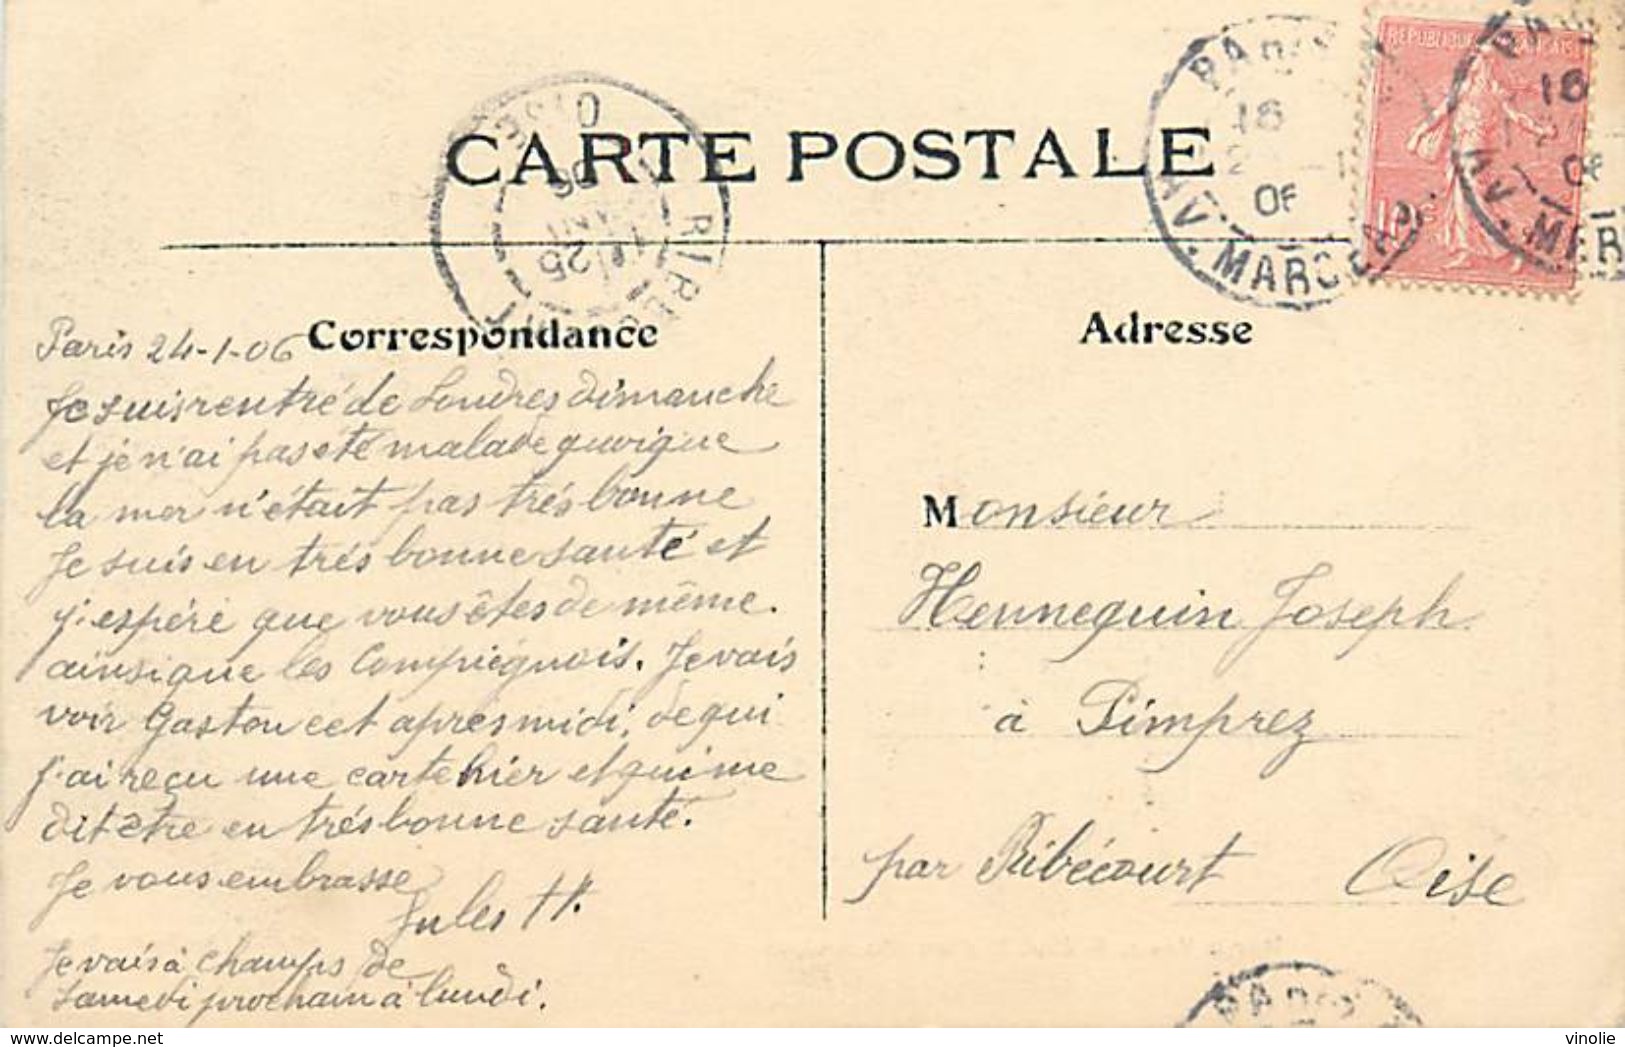 CARTE POSTALE
REPUBLIQUE FRANÇAISE
10c
OISE
RIBÉCOURT
25
JANV
06
PARIS
16
06
AV. MARCEAU
PARIS
16
06
AV. MER
PARIS
Correspondance
Adresse
Paris 24-1-06
Je suis rentré de Londres dimanche
et je n'ai pas eté malade quoique
la mer n'était pas trés bonne
Je suis en trés bonne santé et
j'espére que vous êtes de même.
ainsi que les Compiégnois. Je vais
voir Gaston cet aprésmidi, de qui
j'ai reçu une carte hier et qui me
dit être en trés bonne santé.
Je vous embrasse
Jules H.
Je vais à champs de
samedi prochain à lundi.
Monsieur
Hennequin Joseph
à Pimprez
par Ribécourt Oise
vinolie
delcampe.net